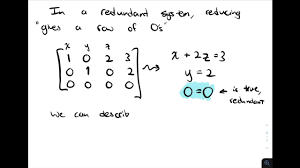 In a redundant system, reducing
"gives a row of 0's"
x y z
1 0 2 3
0 1 0 2
0 0 0 0
x + 2z = 3
y = 2
0 = 0 ← is true, redundant
we can describ